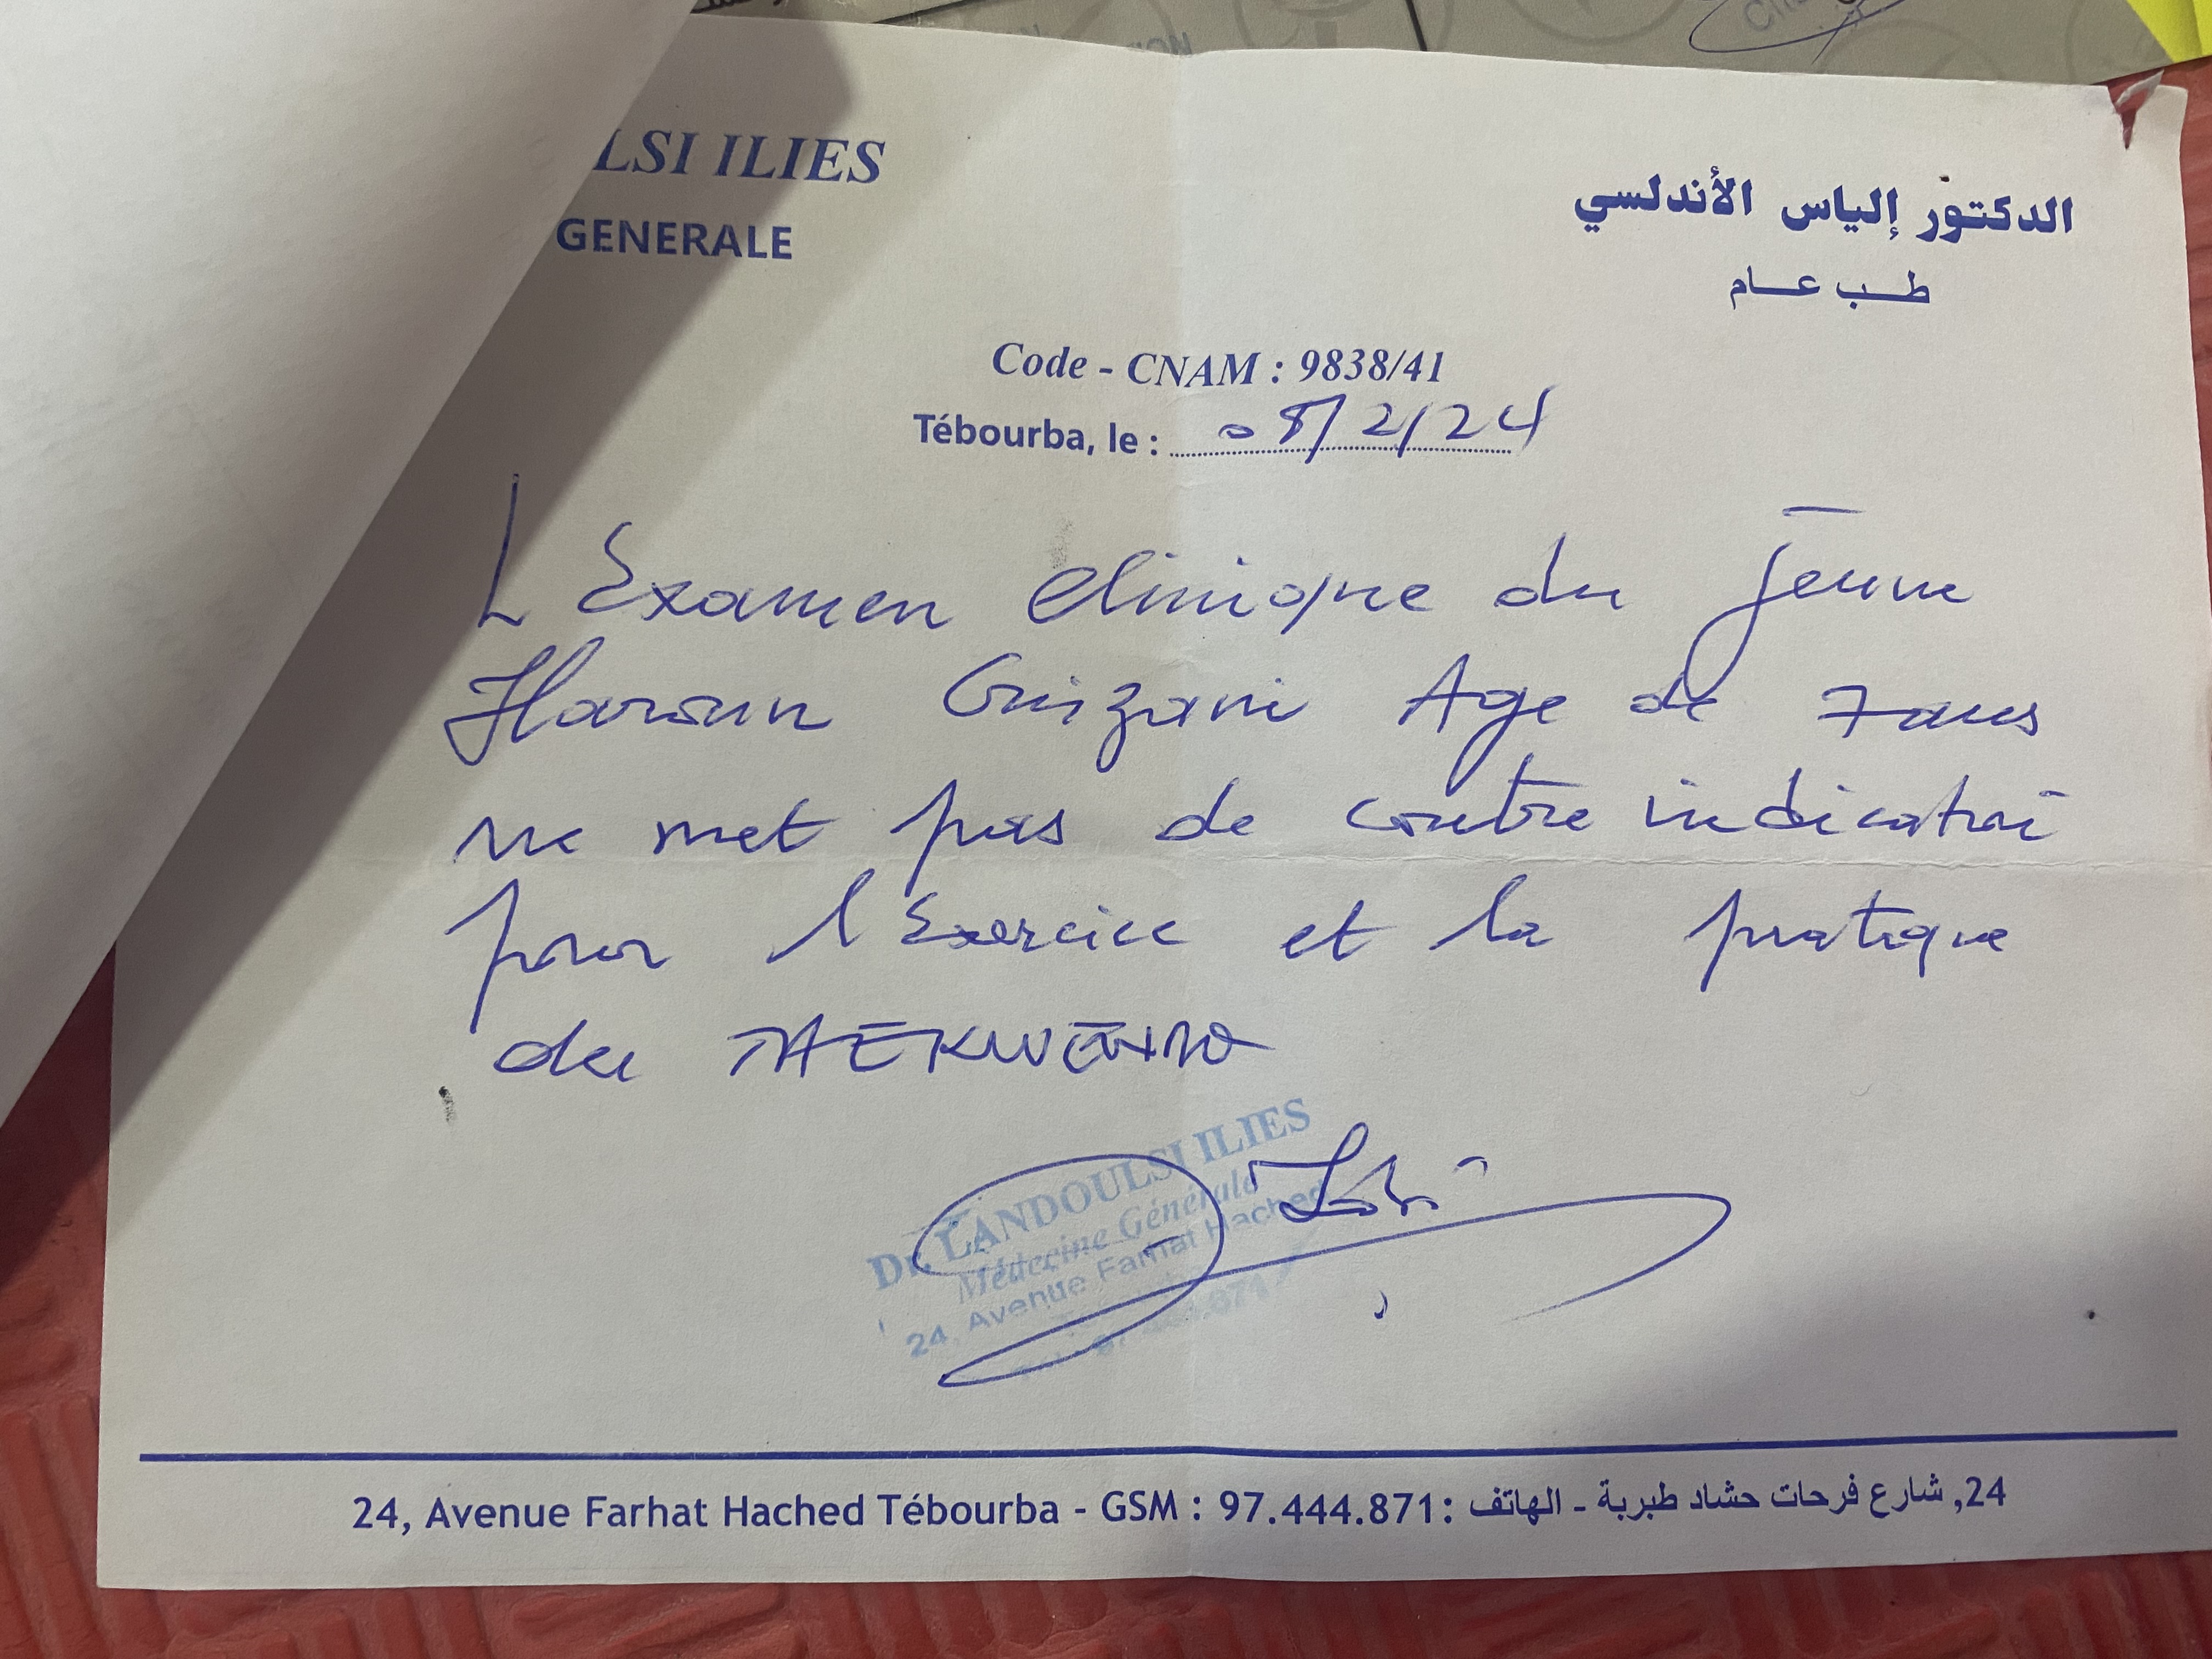 LSI ILIES
GENERALE
الدكتور إلياس الأندلسي
طب عام
Code - CNAM : 9838/41
Tébourba, le : 08/2/24
L'Examen Clinique du jeune
Haroun Guizani Age de 7 ans
ne met pas de contre indication
pour l'Exercice et la pratique
du TAEKWENDO
Dr. LANDOULSI ILIES
Médecine Générale
24, Avenue Farhat Hached
24, Avenue Farhat Hached Tébourba - GSM : 97.444.871 : الهاتف - شارع فرحات حشاد طبربة ,24